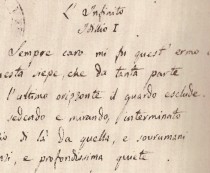 L'Infinito
Idillio I
Sempre caro mi fu quest'ermo
questa siepe, che da tanta parte
l'ultimo orizzonte il guardo esclude.
sedendo e mirando, interminato
di là da quella, e sovrumani
e profondissima quiete